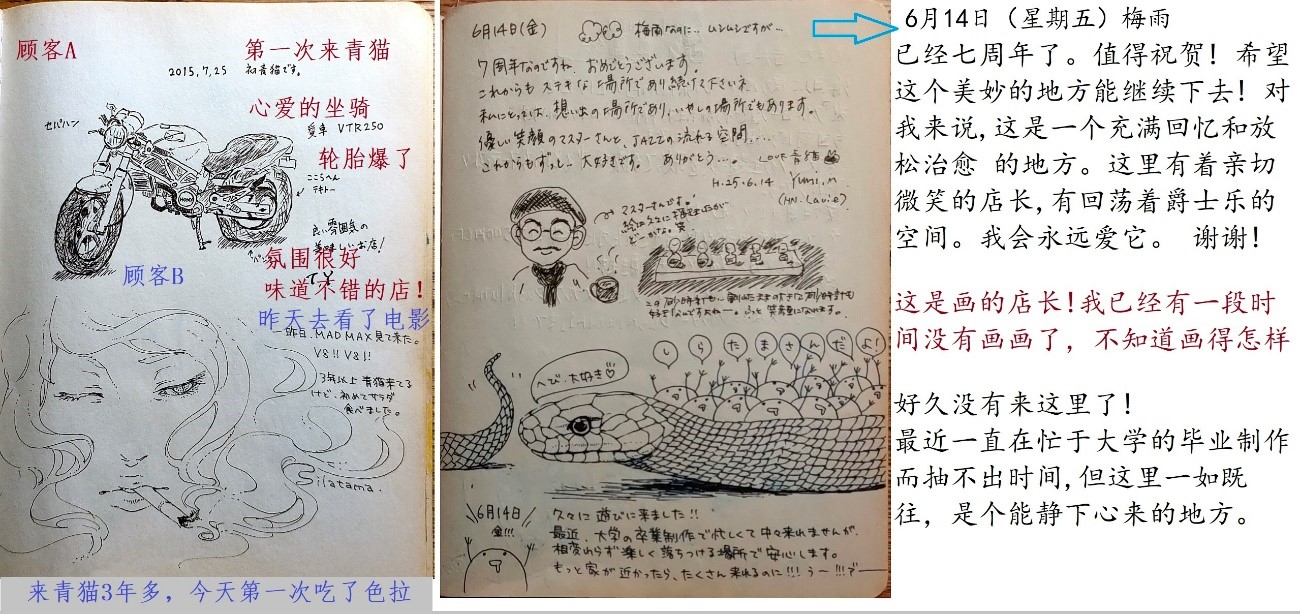 顾客A
第一次来青猫
2015.7.25 初青猫です。
心爱的坐骑
セパハン
愛車 VTR250
轮胎爆了
ここらへん
テキトー
良い雰囲気の
美味しいお店!
氛围很好
味道不错的店！
T.Y
顾客B
昨天去看了电影
昨日、MAD MAX見て来た。
V8!! V8!!
3年以上青猫来てる
けど、初めてサラダ
食べました。
Silatama.
来青猫3年多，今天第一次吃了色拉
6月14日(金) 梅雨なのに… ムシムシですが…
7周年なのですね。おめでとうございます。
これからもステキな場所であり続けて下さいネ
私にとっては、想い出の場所であり、いやしの場所でもあります。
優しい笑顔のマスターさんと、JAZZの流れる空間…。
これからもずっと… 大好きです。 ありがとう…。 Love 青猫
H.25.6.14 Yumi.M
(HN. Lavie)
マスターさんです。
へび、大好き♡
しらたまさんだよ!
6月14日
金!!!
久々に遊びに来ました!!
最近、大学の卒業制作で忙しくて中々来れませんが、
相変わらず楽しく落ちつける場所で安心します。
もっと家が近かったら、たくさん来れるのに!!! うー!!!
6月14日（星期五）梅雨
已经七周年了。值得祝贺！希望
这个美妙的地方能继续下去！对
我来说,这是一个充满回忆和放
松治愈 的地方。这里有着亲切
微笑的店长,有回荡着爵士乐的
空间。我会永远爱它。 谢谢！
这是画的店长!我已经有一段时
间没有画画了，不知道画得怎样
好久没有来这里了！
最近一直在忙于大学的毕业制作
而抽不出时间,但这里一如既
往，是个能静下心来的地方。